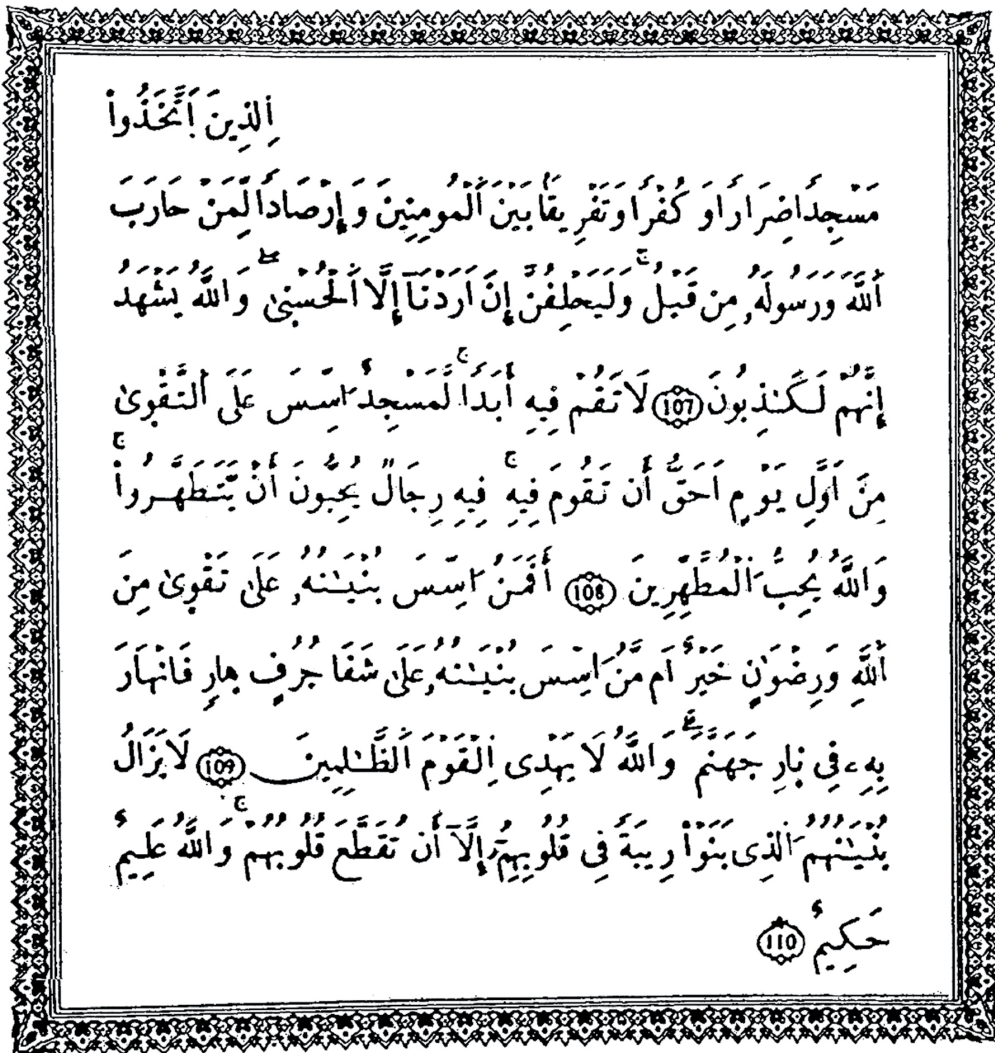 اِ۬لذِينَ اَ۪تَّخَذُواْ
مَسْجِداٗ ضِرَاراٗ وَكُفْراٗ وَتَفْرِيقاَۢ بَيْنَ اَ۬لْمُومِنِينَ وَإِرْصَاداٗ لِّمَنْ حَارَبَ
اَ۬للَّهَ وَرَسُولَهُۥ مِن قَبْلُۚ وَلَيَحْلِفُنَّ إِنَ اَرَدْنَآ إِلَّا اَ۬لْحُسْنۭىٰۖ وَاللَّهُ يَشْهَدُ
إِنَّهُمْ لَكَٰذِبُونَ 107 لَا تَقُمْ فِيهِ أَبَداٗۚ لَّمَسْجِدٌ ا۟سِّسَ عَلَى اَ۬لتَّقْوۭىٰ
مِنَ اَوَّلِ يَوْمٍ اَحَقُّ أَن تَقُومَ فِيهِۚ فِيهِ رِجَالٞ يُحِبُّونَ أَنْ يَّتَطَهَّرُواْۚ
وَاللَّهُ يُحِبُّ اُ۬لْمُطَّهِّرِينَ 108 أَفَمَنُ ا۟سِّسَ بُنْيَٰنُهُۥ عَلَىٰ تَقْوۭىٰ مِنَ
اَ۬للَّهِ وَرِضْوَٰنٍ خَيْرٌ اَم مَّنُ ا۟سِّسَ بُنْيَٰنُهُۥ عَلَىٰ شَفَا جُرُفٍ هۭارٖ فَانْهَارَ
بِهِۦ فِى نۭارِ جَهَنَّمَۖ وَاللَّهُ لَا يَهْدِى اِ۬لْقَوْمَ اَ۬لظَّٰلِمِينَ 109 لَا يَزَالُ
بُنْيَٰنُهُمُ اُ۬لذِى بَنَوْاْ رِيبَةٗ فِى قُلُوبِهِمُۥٓ إِلَّآ أَن تُقَطَّعَ قُلُوبُهُمْۚ وَاللَّهُ عَلِيمٌ
حَكِيمٌ 110